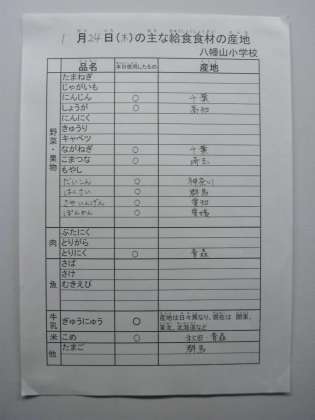 1月24日(木)の主な給食食材の産地
八幡山小学校
品名 本日使用したもの 産地
野菜・果物
たまねぎ
じゃがいも
にんじん ○ 千葉
しょうが ○ 高知
にんにく
きゅうり
キャベツ
ながねぎ ○ 千葉
こまつな ○ 埼玉
もやし
だいこん ○ 神奈川
はくさい ○ 群馬
さやいんげん ○ 愛知
ぽんかん ○ 愛媛
肉
ぶたにく
とりがら
とりにく ○ 青森
魚
さば
さけ
むきえび
牛乳 ぎゅうにゅう ○ 産地は日々異なり、現在は 関東、
東北、北海道など
米 こめ ○ 秋田・青森
他 たまご 群馬